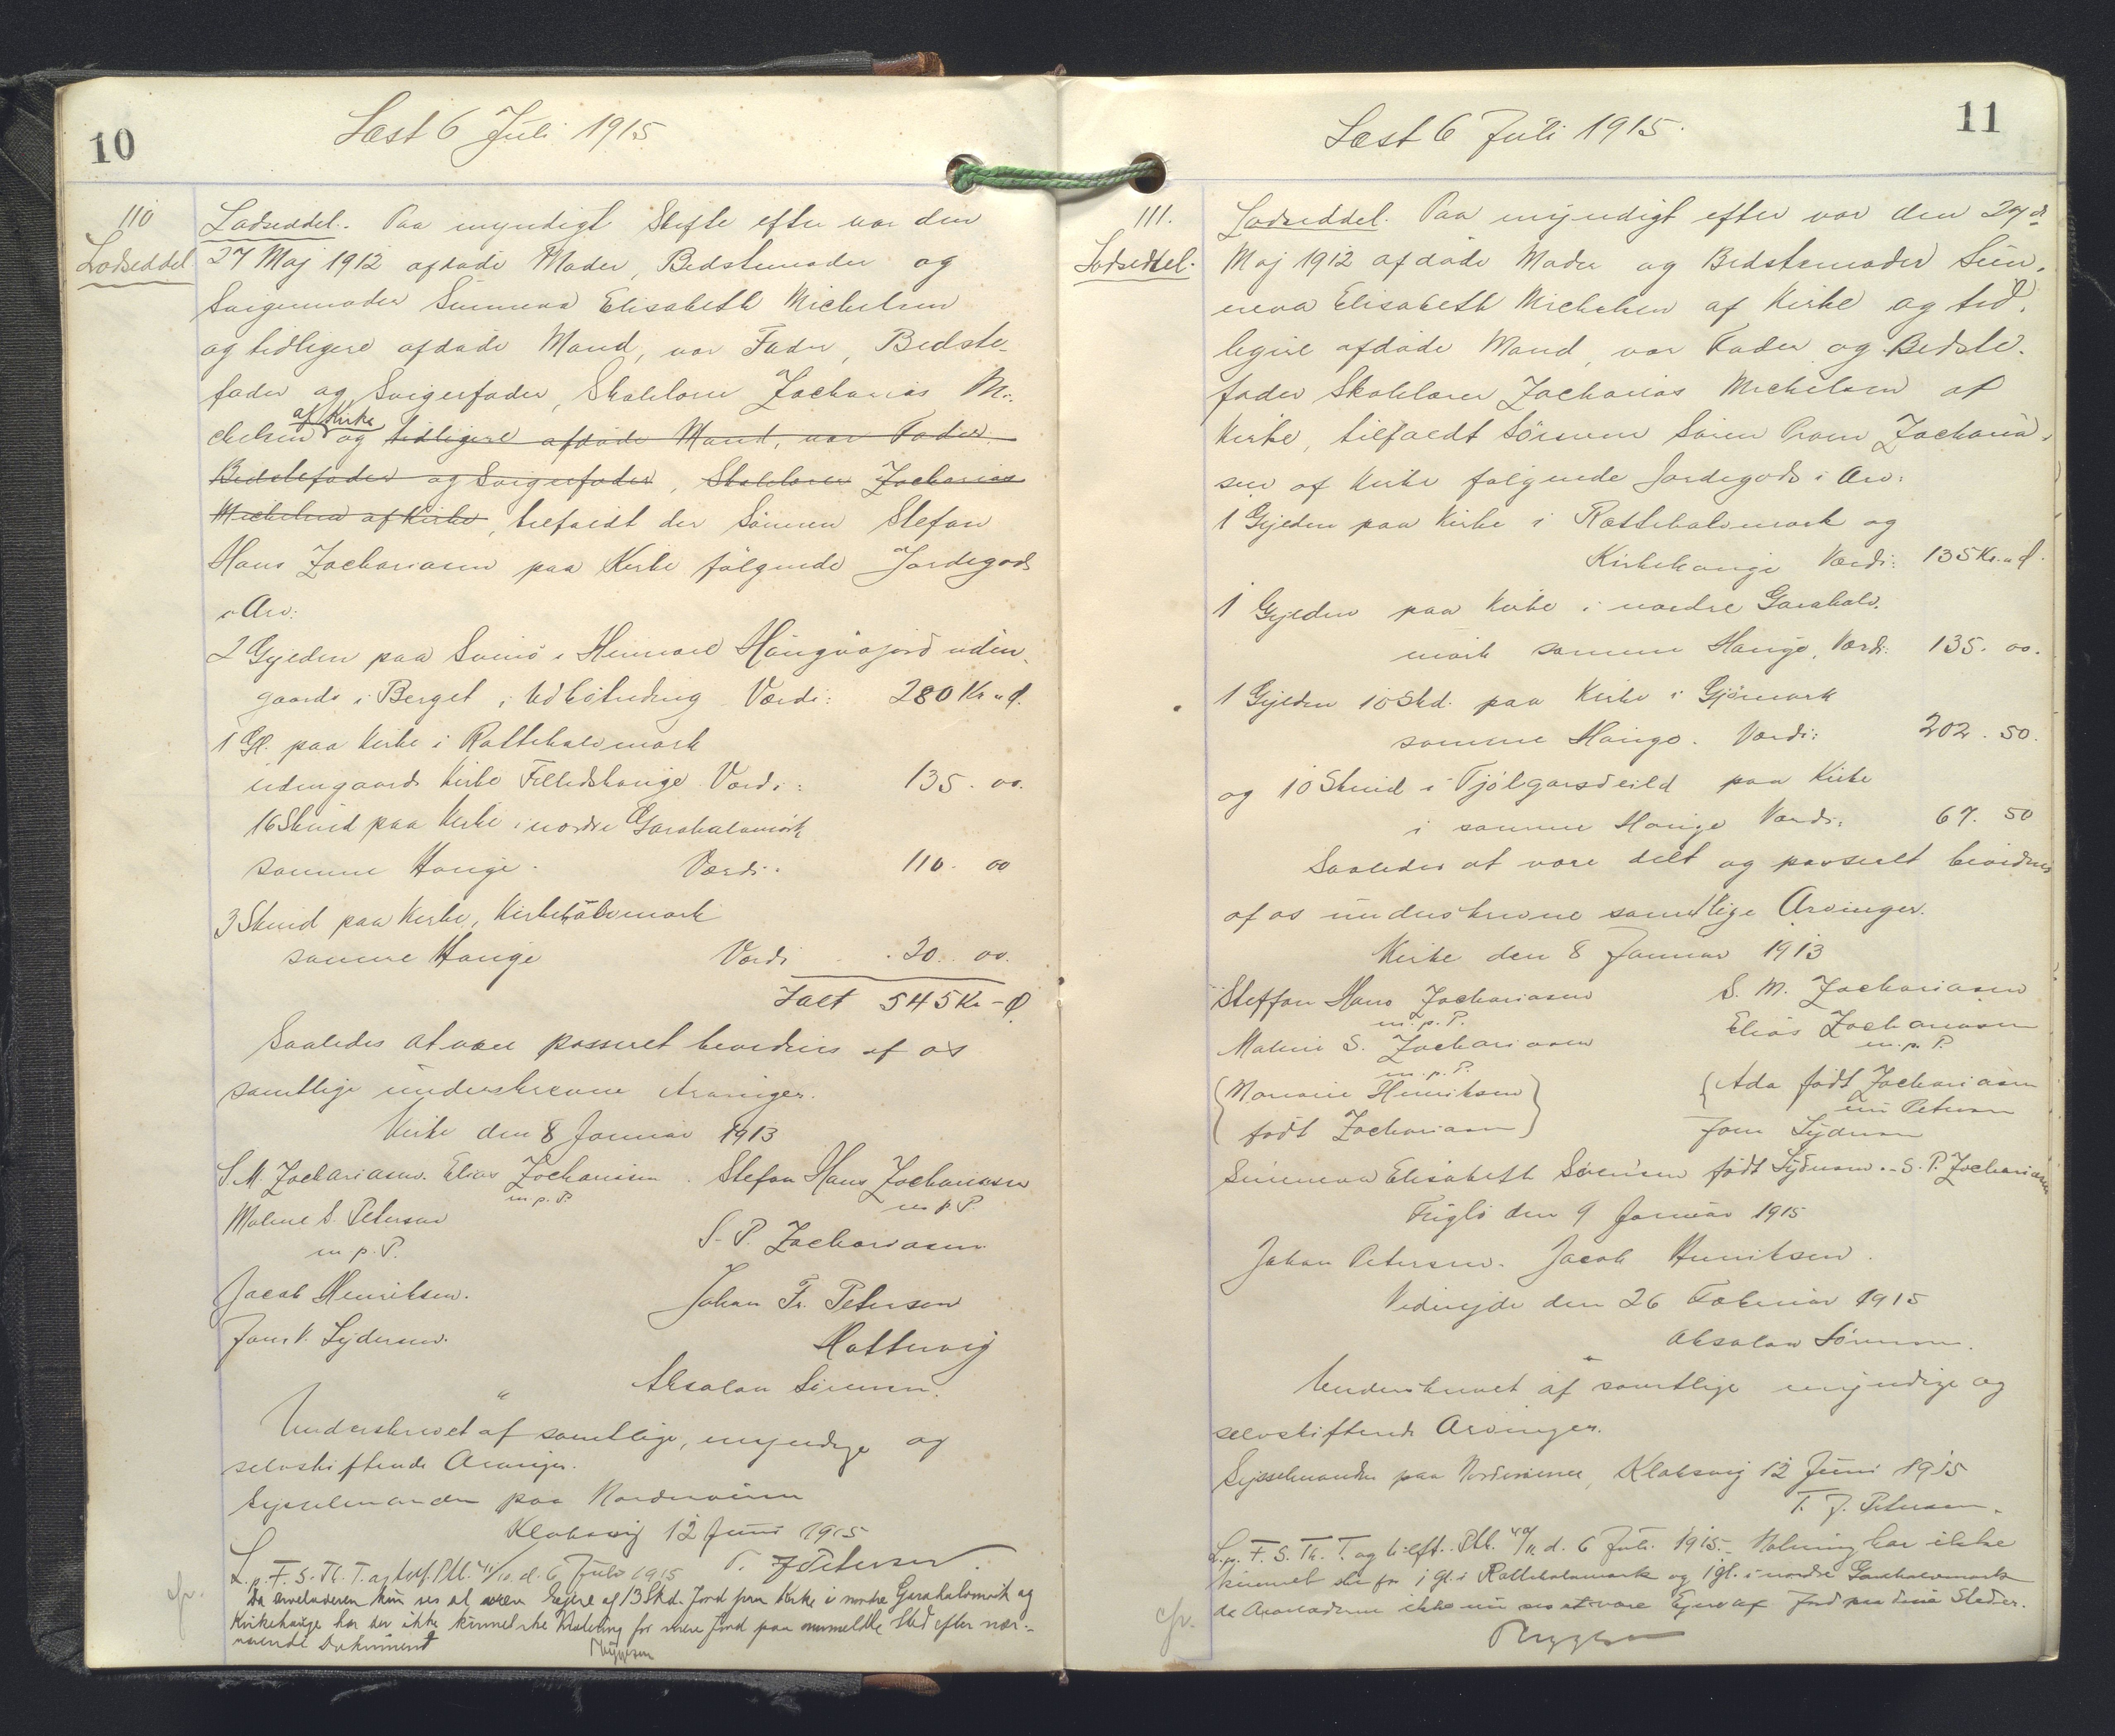 10
Læst 6 Juli 1915
110
Lodseddel
Lodseddel. Paa myndigt Skifte efter vor den
27 Maj 1912 afdøde Moder, Bedstemoder og
Svigermoder Sunneva Elisabeth Michelsen
og tidligere afdøde Mand, vor Fader, Bedste-
fader og Svigerfader, Skolelærer Zacharias Mi-
chelsen af Kirke og tidligere afdøde Mand, vor Fader
Bedstefader og Svigerfader, Skolelærer Zacharias
Michelsen af Kirke, tilfaldt der Sønnen Stefan
Hans Zachariasen paa Kirke følgende Jordegods
i Arv:
2 Gylden paa Svinø i Heimare Húsgvøsjord uden-
gaards i Berget, i Udbøtuding Værdi: 280 Kr " Ø.
1 Gl. paa Kirke i Rottehalsmark
udengaards Kirke Fælledshauge Værdi: 135. 00.
16 Skind paa Kirke i nordre Garahalsmark
samme Hauge. Værdi: 110. 00
3 Skind paa Kirke, Kirkehálsmark
samme Hauge Værdi . 20. 00.
Ialt 545 Kr - Ø.
Saaledes at være passeret bevidnes af os
samtlige underskrevne Arvinger.
Kirke den 8 Januar 1913
S. M. Zachariasen. Elias Zachariasen. Stefan Hans Zachariasen
m. p. P. m p P.
Maline S. Petersen
m p. P. S. P. Zachariasen
Jacob Henriksen. Johan Fr. Petersen
Joen P. Lydersen. Hattervig
Absalon Sørensen.
"
Underskrevet af samtlige, myndige og
selvskiftende Arvinger.
Sysselmanden paa Norderøerne
Klaksvig 12 Juni 1915
T. J Petersen.
L. p. F. S. Th. T. og
d. 6 Juli 1915
Da Arveladeren kun ses at være Ejere af 13 Skd. Jord paa Kirke i nordre Garahalsmark og
Kirkehauge har der ikke kunnet ske Notering for mere Jord paa ommeldte Sted efter nær-
værende Dokument
cfr.
11
Læst 6 Juli 1915.
111.
Lodseddel.
Lodseddel. Paa myndigt efter vor den 27d
Maj 1912 afdøde Moder og Bedstemoder Sun-
neva Elisabeth Michelsen af Kirke og tid-
ligere afdøde Mand vor Fader og Bedste-
fader Skolelærer Zacharias Michelsen af
Kirke, tilfaldt Sønnen Søren Pram Zacharia-
sen af Kirke følgende Jordegods i Arv:
1 Gylden paa Kirke i Rottehalsmark og
Kirkehauge Værdi: 135 Kr. " Ø.
1 Gylden paa Kirke i nordre Garahals-
mark samme Hauge, Værdi: 135. 00.
1 Gylden 10 Skd. paa Kirke i Gjómark
samme Hauge. Værdi: 202. 50.
og 10 Skind i Tjølgarsdeild paa Kirke
i samme Hauge Værdi: 67. 50
Saaledes at være delt og passeret bevidnes
af os underskrevne samtlige Arvinger.
Kirke den 8 Januar 1913
Steffan Hans Zachariasen S. M. Zachariasen
m. p. P.
Maline S. Zachariasen Elias Zachariasen
m. p. P. m. p. P.
Henriksen Ada født Zachariasen
født Zachariasen nu Petersen
Joen Lydersen
Sunneva Elisabeth Sørensen født Lydersen. - S. P. Zachariasen
Fuglø den 9 Januar 1915
Johan Petersen. Jacob Henriksen.
Viderejde den 26 Februar 1915
Absalon Sørensen.
"
Underskrevet af samtlige myndige og
selvskiftende Arvinger.
Sysselmanden paa Norderøerne, Klaksvig 12 Juni 1915
T. J. Petersen.
L. p. F. S. Th. T. og
d. 6 Juli 1915. Notering har ikke
kunnet ske for 1 gl. i Rottehalsmark og 1 gl. i nordre Garahalsmark
da Arveladerne ikke ses at være Ejere af Jord paa disse Steder.
cfr.